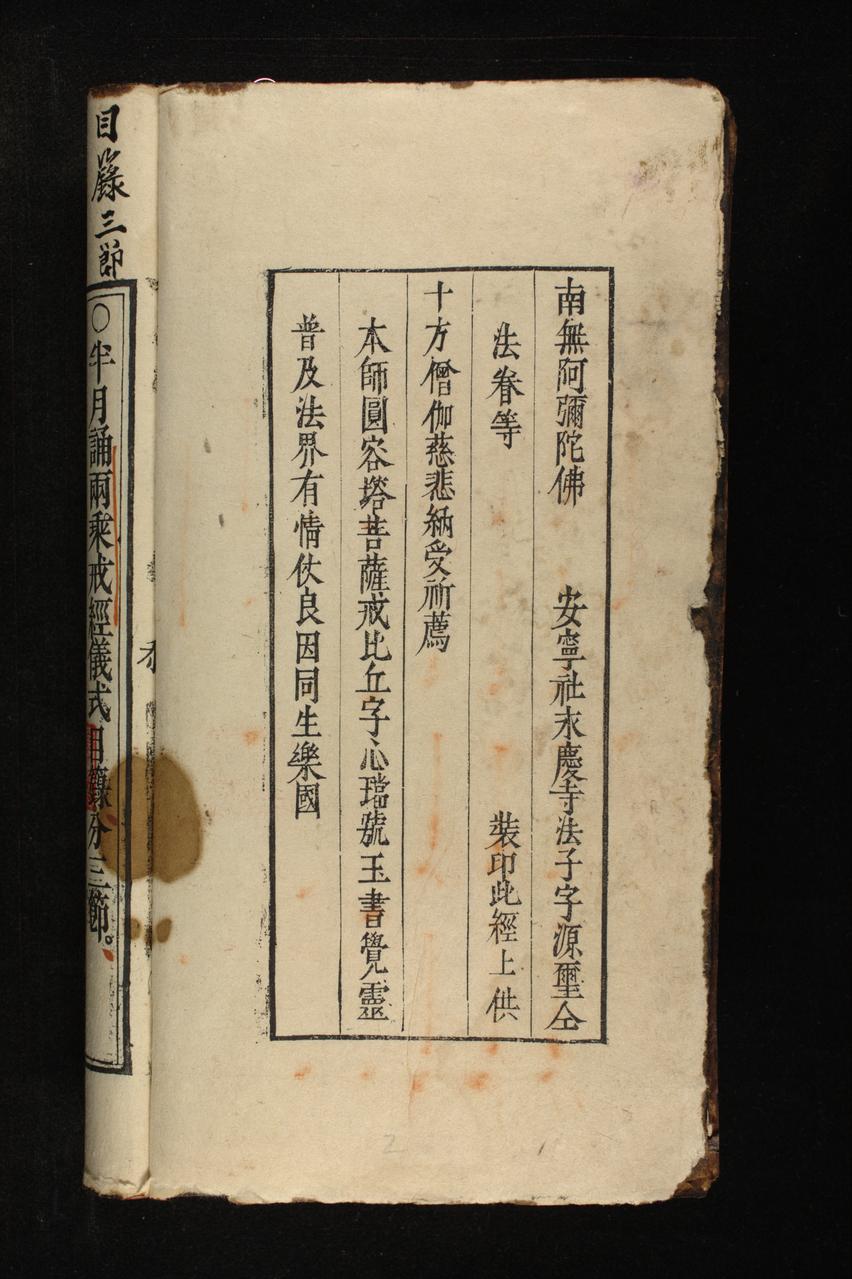 南無阿彌陀佛 安寧社永慶寺法子字源璽仝
法眷等 裝印此經上供
十方僧伽慈悲納受祈薦
本師圓容塔菩薩戒比丘字心璫號玉書覺靈
普及法界有情仗良因同生樂國
目籙三節
○半月誦兩乘戒經儀式目籙分三節。